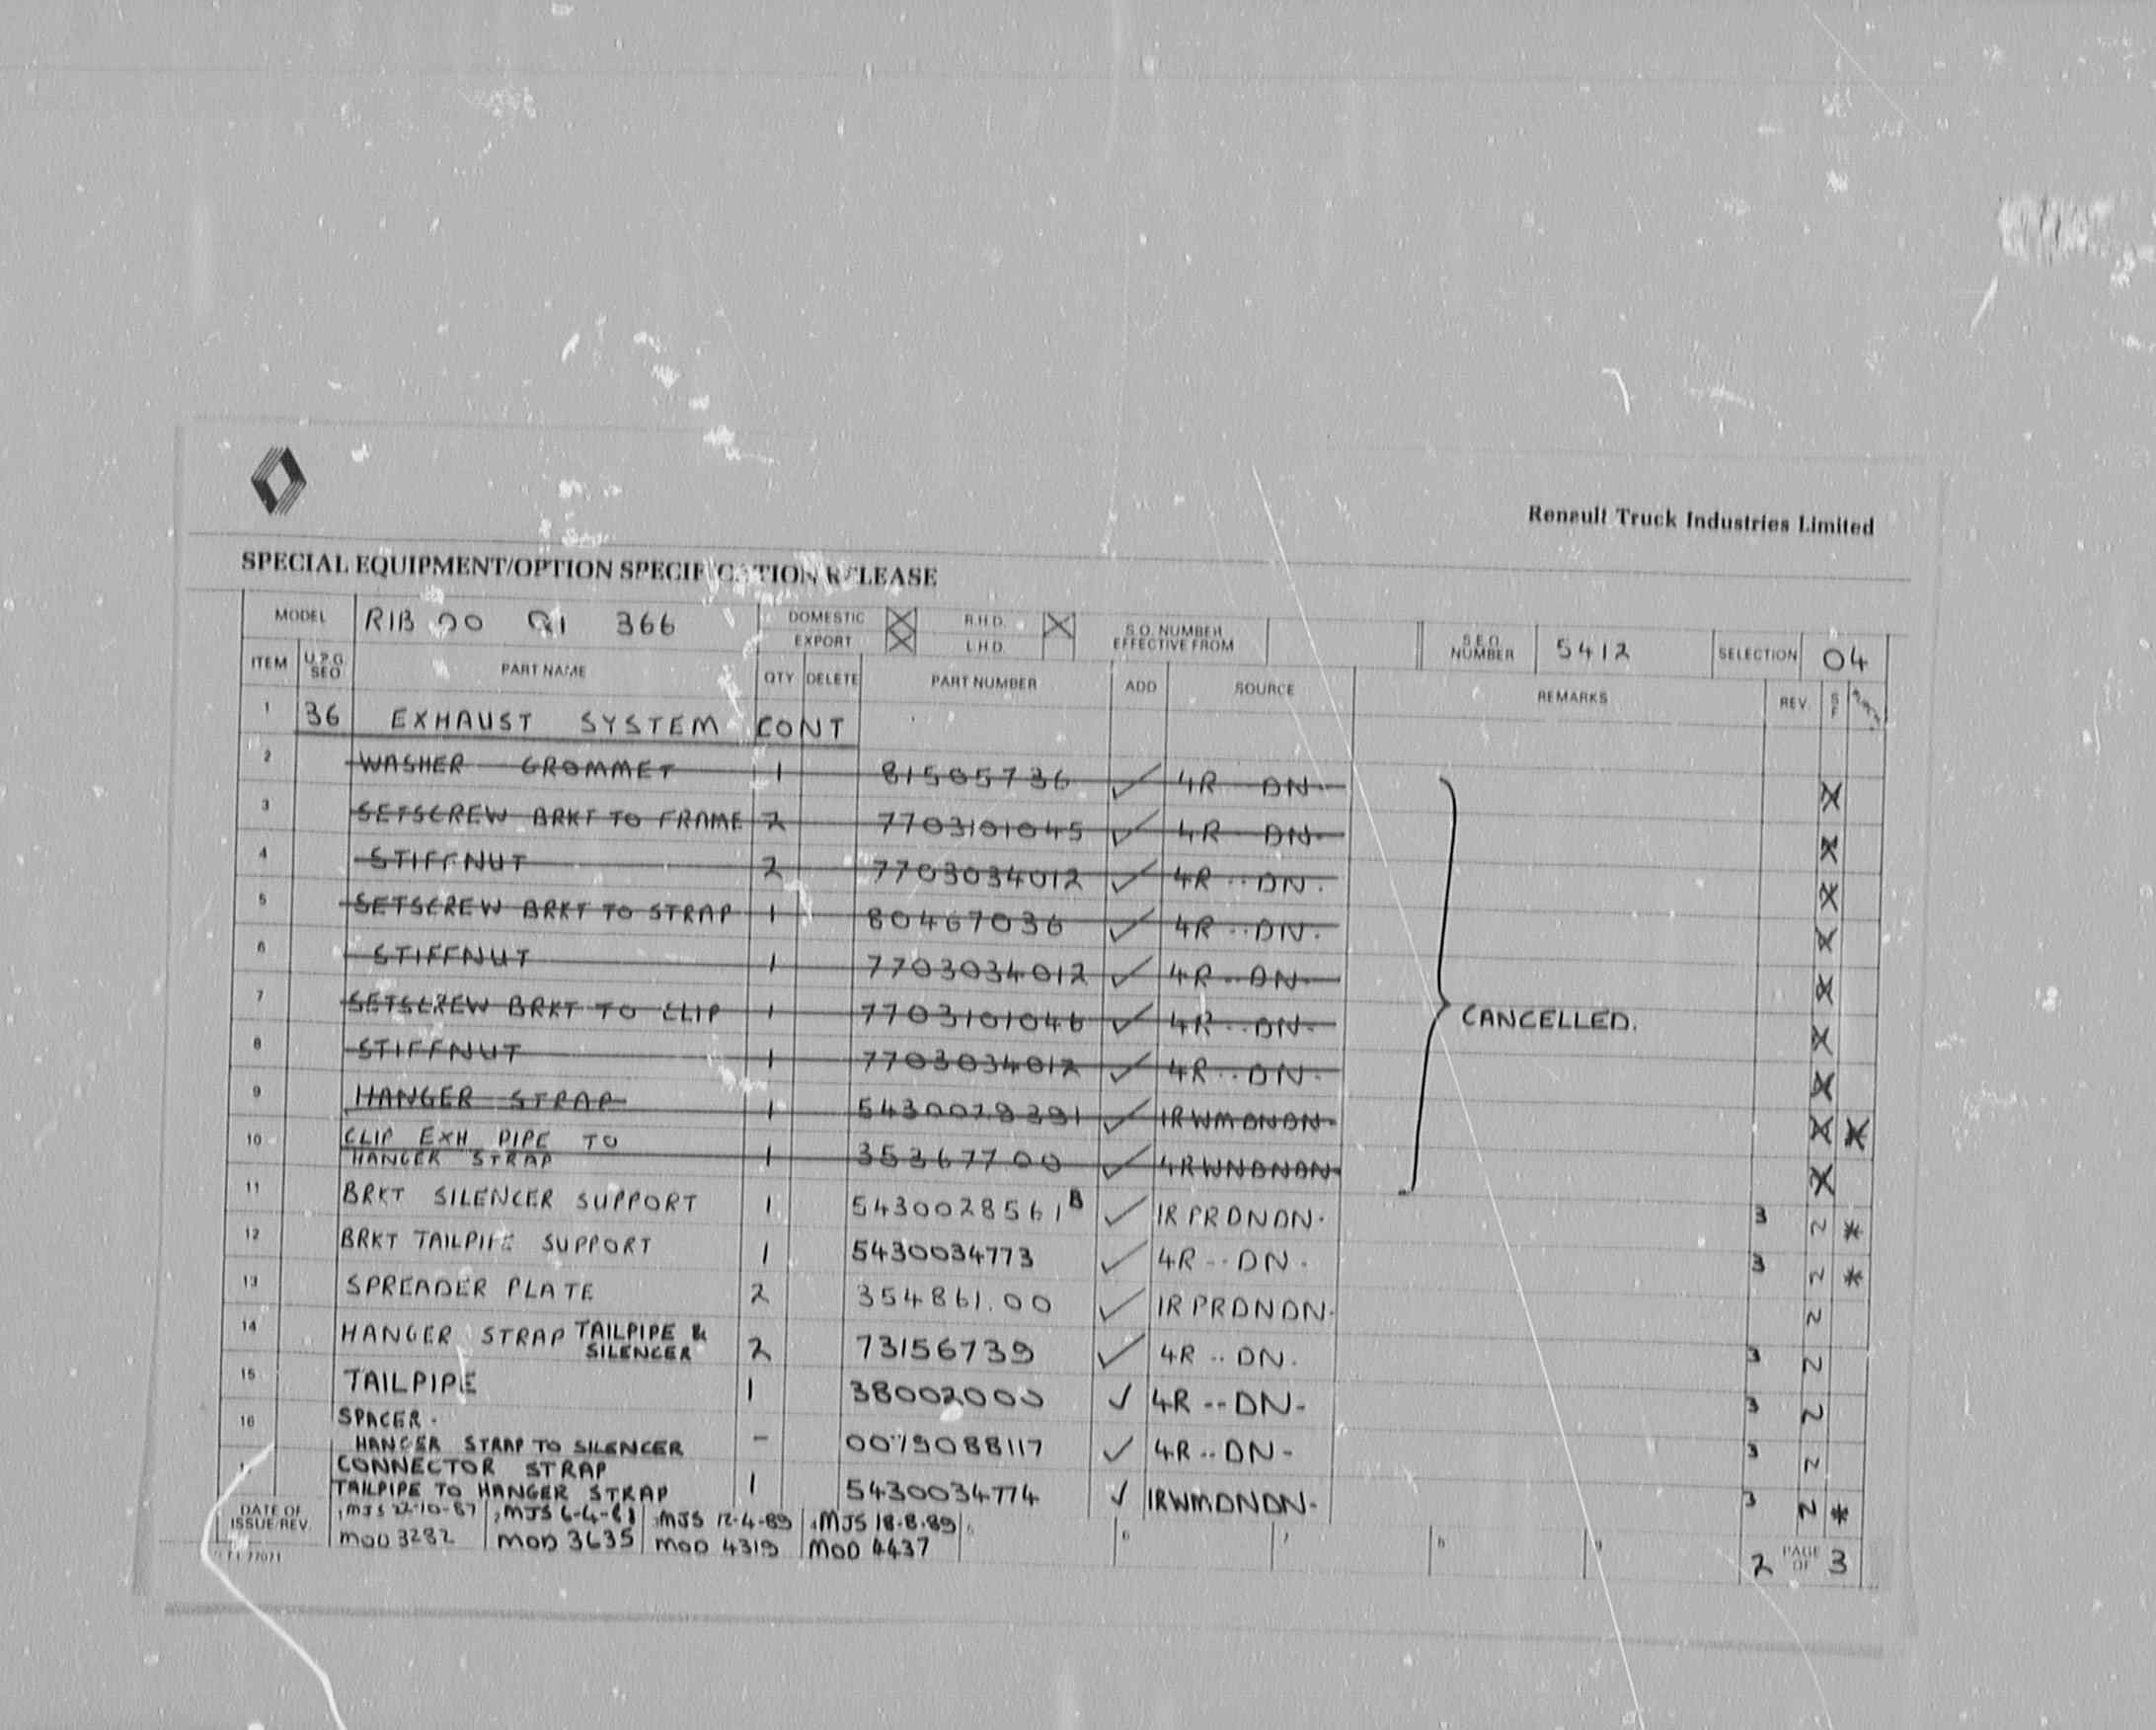 Renault Truck Industries Limited
SPECIAL EQUIPMENT/OPTION SPECIFICATION RELEASE
MODEL RIB 00 Q1 366 DOMESTIC R.H.D. S.O. NUMBER EFFECTIVE FROM S.E.O. NUMBER 5412 SELECTION 04
EXPORT L.H.D.
ITEM U.P.G. SEQ PART NAME QTY DELETE PART NUMBER ADD SOURCE REMARKS REV S F
1 36 EXHAUST SYSTEM CONT
2 WASHER GROMMET 1 81505736 ✓ 4R DN. X
3 SETSCREW BRKT TO FRAME 2 7703101045 ✓ 4R DN. X
4 STIFFNUT 2 7703034012 ✓ 4R .. DN. X
5 SETSCREW BRKT TO STRAP 1 80467036 ✓ 4R .. DN. X
6 STIFFNUT 1 7703034012 ✓ 4R .. DN. X
7 SETSCREW BRKT TO CLIP 1 7703101046 ✓ 4R .. DN. CANCELLED. X
8 STIFFNUT 1 7703034012 ✓ 4R .. DN. X
9 HANGER STRAP 1 ✓ 1RWMDNDN. X *
10 CLIP EXH PIPE TO
HANGER STRAP 1 35367700 ✓ 4RWNDNDN. X
11 BRKT SILENCER SUPPORT 1 5430028561B ✓ 1RPRDNDN. 3 2 *
12 BRKT TAILPIPE SUPPORT 1 5430034773 ✓ 4R -- DN. 3 2 *
13 SPREADER PLATE 2 354861.00 ✓ 1RPRDNDN. 2
14 HANGER STRAP TAILPIPE &
SILENCER 2 73156739 ✓ 4R .. DN. 3 2
15 TAILPIPE 1 38002000 ✓ 4R -- DN- 3 2
16 SPACER -
HANGER STRAP TO SILENCER - 0079088117 ✓ 4R .. DN- 3 2
CONNECTOR STRAP
TAILPIPE TO HANGER STRAP 1 5430034774 ✓ 1RWMDNDN. 3 2 *
DATE OF ISSUE/REV. MJS 22-10-87 MJS 6-4-88 MJS 12-4-89 MJS 18-8-89
MOD 3282 MOD 3635 MOD 4319 MOD 4437 6 7 8 9 2 PAGE OF 3
77071